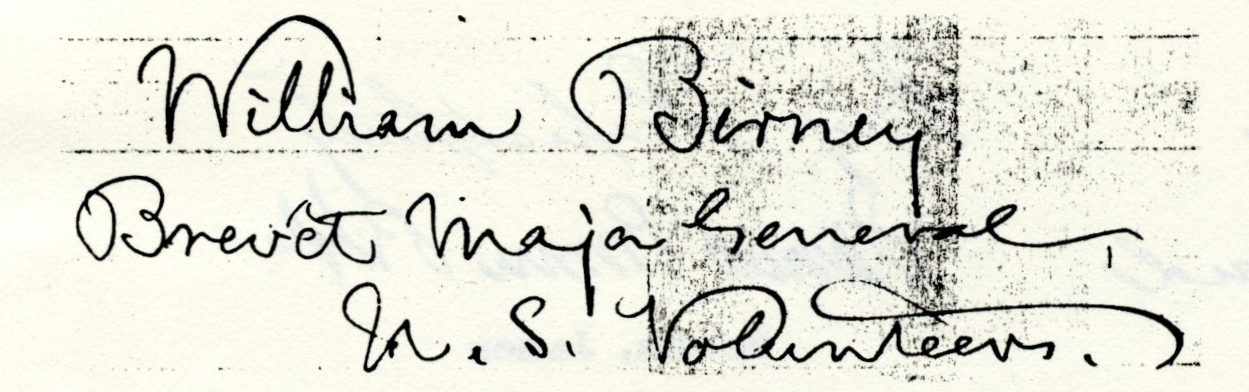 William Birney,
Brevet Major General,
U. S. Volunteers.